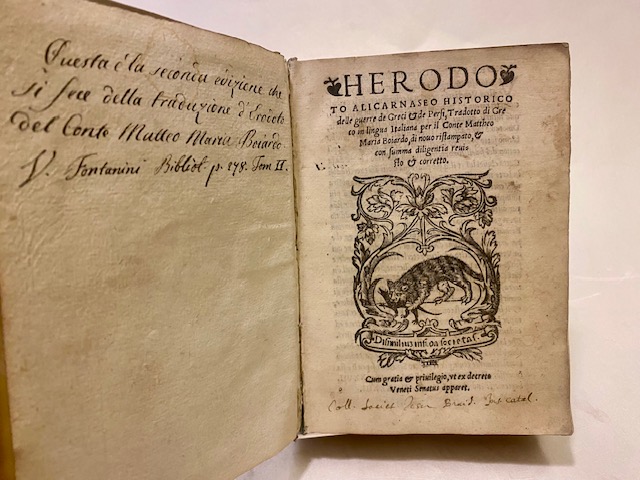 Questa è la seconda edizione che
si fece della traduzione d'Erodoto
del Conte Matteo Maria Boiardo
V. Fontanini Bibliot. p. 178. Tom II.
HERODO
TO ALICARNASEO HISTORICO
delle guerre de Greci & de Persi, Tradotto di Gre
co in lingua Italiana per il Conte Mattheo
Maria Boiardo, di nouo ristampato, &
con summa diligentia reuis
to & corretto.
V.
Dissimilium infida societas.
Cum gratia & priuilegio, vt ex decreto
Veneti Senatus apparet.
Coll. Societ. Jesu Braid. Inst. catal.